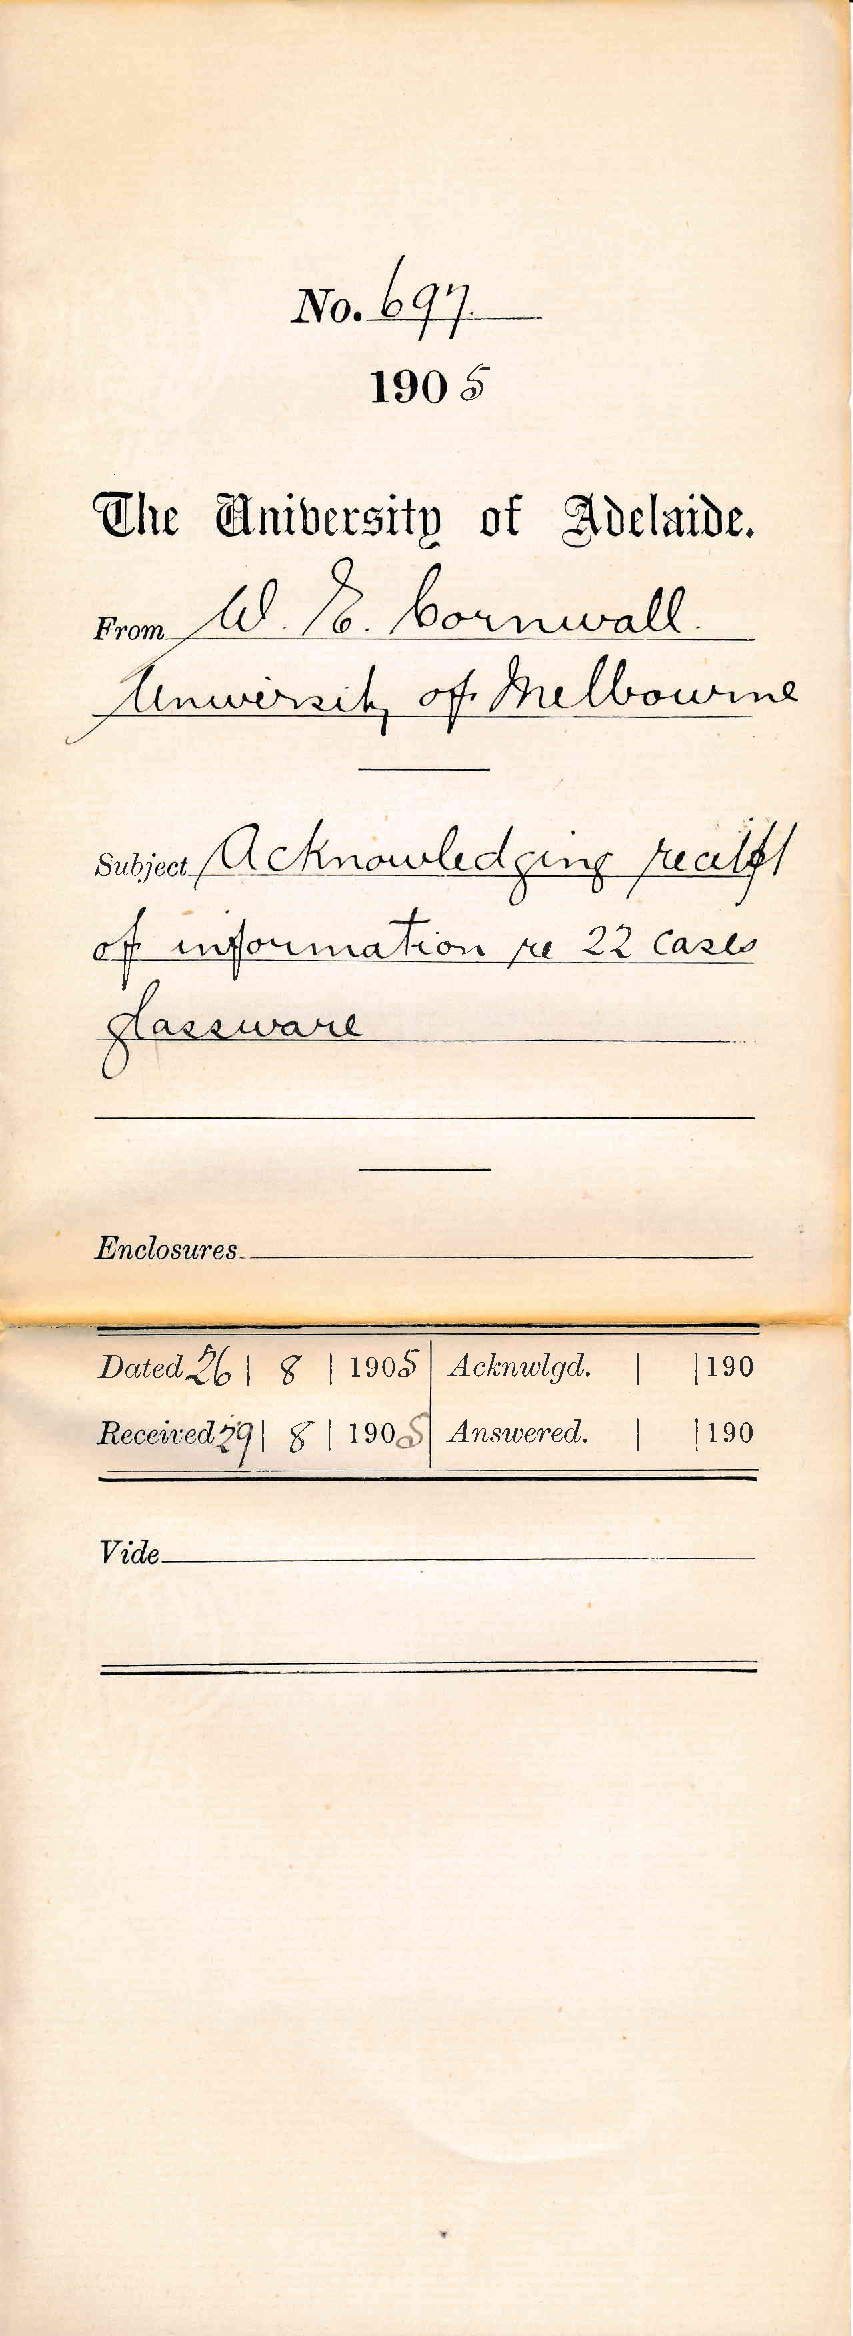 No. 697.
1905
The University of Adelaide.
From W. E. Cornwall.
University of Melbourne
Subject Acknowledging receipt
of information re 22 cases
glassware
Enclosures
Dated 26 | 8 | 1905 | Acknwlgd. | | 190
Received 29 | 8 | 1905 | Answered. | | 190
Vide